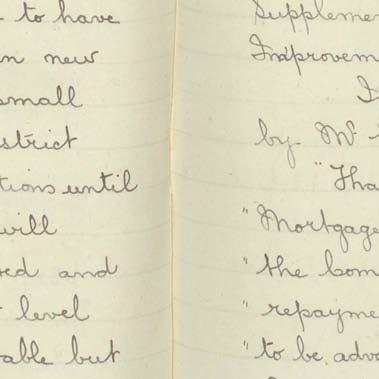 to have
new
small
strict
tions until
will
and
level
able but
Suppleme
Improvem
by Mr
"Tha
"Mortgage
"the Com
"repayme
"to be adva